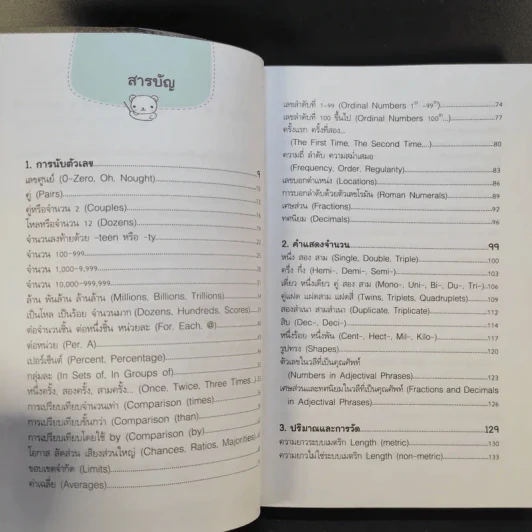 สารบัญ
1. การนับตัวเลข
เลขศูนย์ (0-Zero, Oh, Nought)
คู่ (Pairs)
คู่หรือจำนวน 2 (Couples)
โหลหรือจำนวน 12 (Dozens)
จำนวนลงท้ายด้วย -teen หรือ -ty
จำนวน 100-999
จำนวน 1,000-9,999
จำนวน 10,000-999,999
ล้าน พันล้าน ล้านล้าน (Millions, Billions, Trillions)
เป็นโหล เป็นร้อย จำนวนมาก (Dozens, Hundreds, Scores)
ต่อจำนวนชิ้น ต่อหนึ่งชิ้น หน่วยละ (For, Each, @)
ต่อหน่วย (Per, A)
เปอร์เซ็นต์ (Percent, Percentage)
กลุ่มละ (In Sets of, In Groups of)
หนึ่งครั้ง, สองครั้ง, สามครั้ง... (Once, Twice, Three Times..)
การเปรียบเทียบจำนวนเท่า (Comparison (times)
การเปรียบเทียบขั้นกว่า (Comparison (than)
การเปรียบเทียบโดยใช้ by (Comparison (by)
โอกาส สัดส่วน เสียงส่วนใหญ่ (Chances, Ratios, Majorities)
ขอบเขตจำกัด (Limits)
ค่าเฉลี่ย (Averages)
เลขลำดับที่ 1-99 (Ordinal Numbers 1st -99th) 74
เลขลำดับที่ 100 ขึ้นไป (Ordinal Numbers 100th...) 77
ครั้งแรก ครั้งที่สอง...
(The First Time, The Second Time...) 80
ความถี่ ลำดับ ความสม่ำเสมอ
(Frequency, Order, Regularity) 83
เลขบอกตำแหน่ง (Locations) 86
การบอกลำดับด้วยตัวเลขโรมัน (Roman Numerals) 89
เศษส่วน (Fractions) 92
ทศนิยม (Decimals) 96
2. คำแสดงจำนวน 99
หนึ่ง สอง สาม (Single, Double, Triple) 100
ครึ่ง กึ่ง (Hemi-, Demi-, Semi-) 103
เดี่ยว หนึ่งเดียว คู่ สอง (Mono-, Uni-, Bi-, Du-, Tri-) 106
คู่แฝด แฝดสาม แฝดสี่ (Twins, Triplets, Quadruplets) 109
สองสำเนา สามสำเนา (Duplicate, Triplicate) 112
สิบ (Dec-, Deci-) 114
หนึ่งร้อย หนึ่งพัน (Cent-, Hect-, Mil-, Kilo-) 117
รูปทรง (Shapes) 120
ตัวเลขในวลีที่เป็นคุณศัพท์
(Numbers in Adjectival Phrases) 123
เศษส่วนและทศนิยมในวลีที่เป็นคุณศัพท์ (Fractions and Decimals
in Adjectival Phrases) 126
3. ปริมาณและการวัด 129
ความยาวระบบเมตริก Length (metric) 130
ความยาวไม่ใช่ระบบเมตริก Length (non-metric) 133